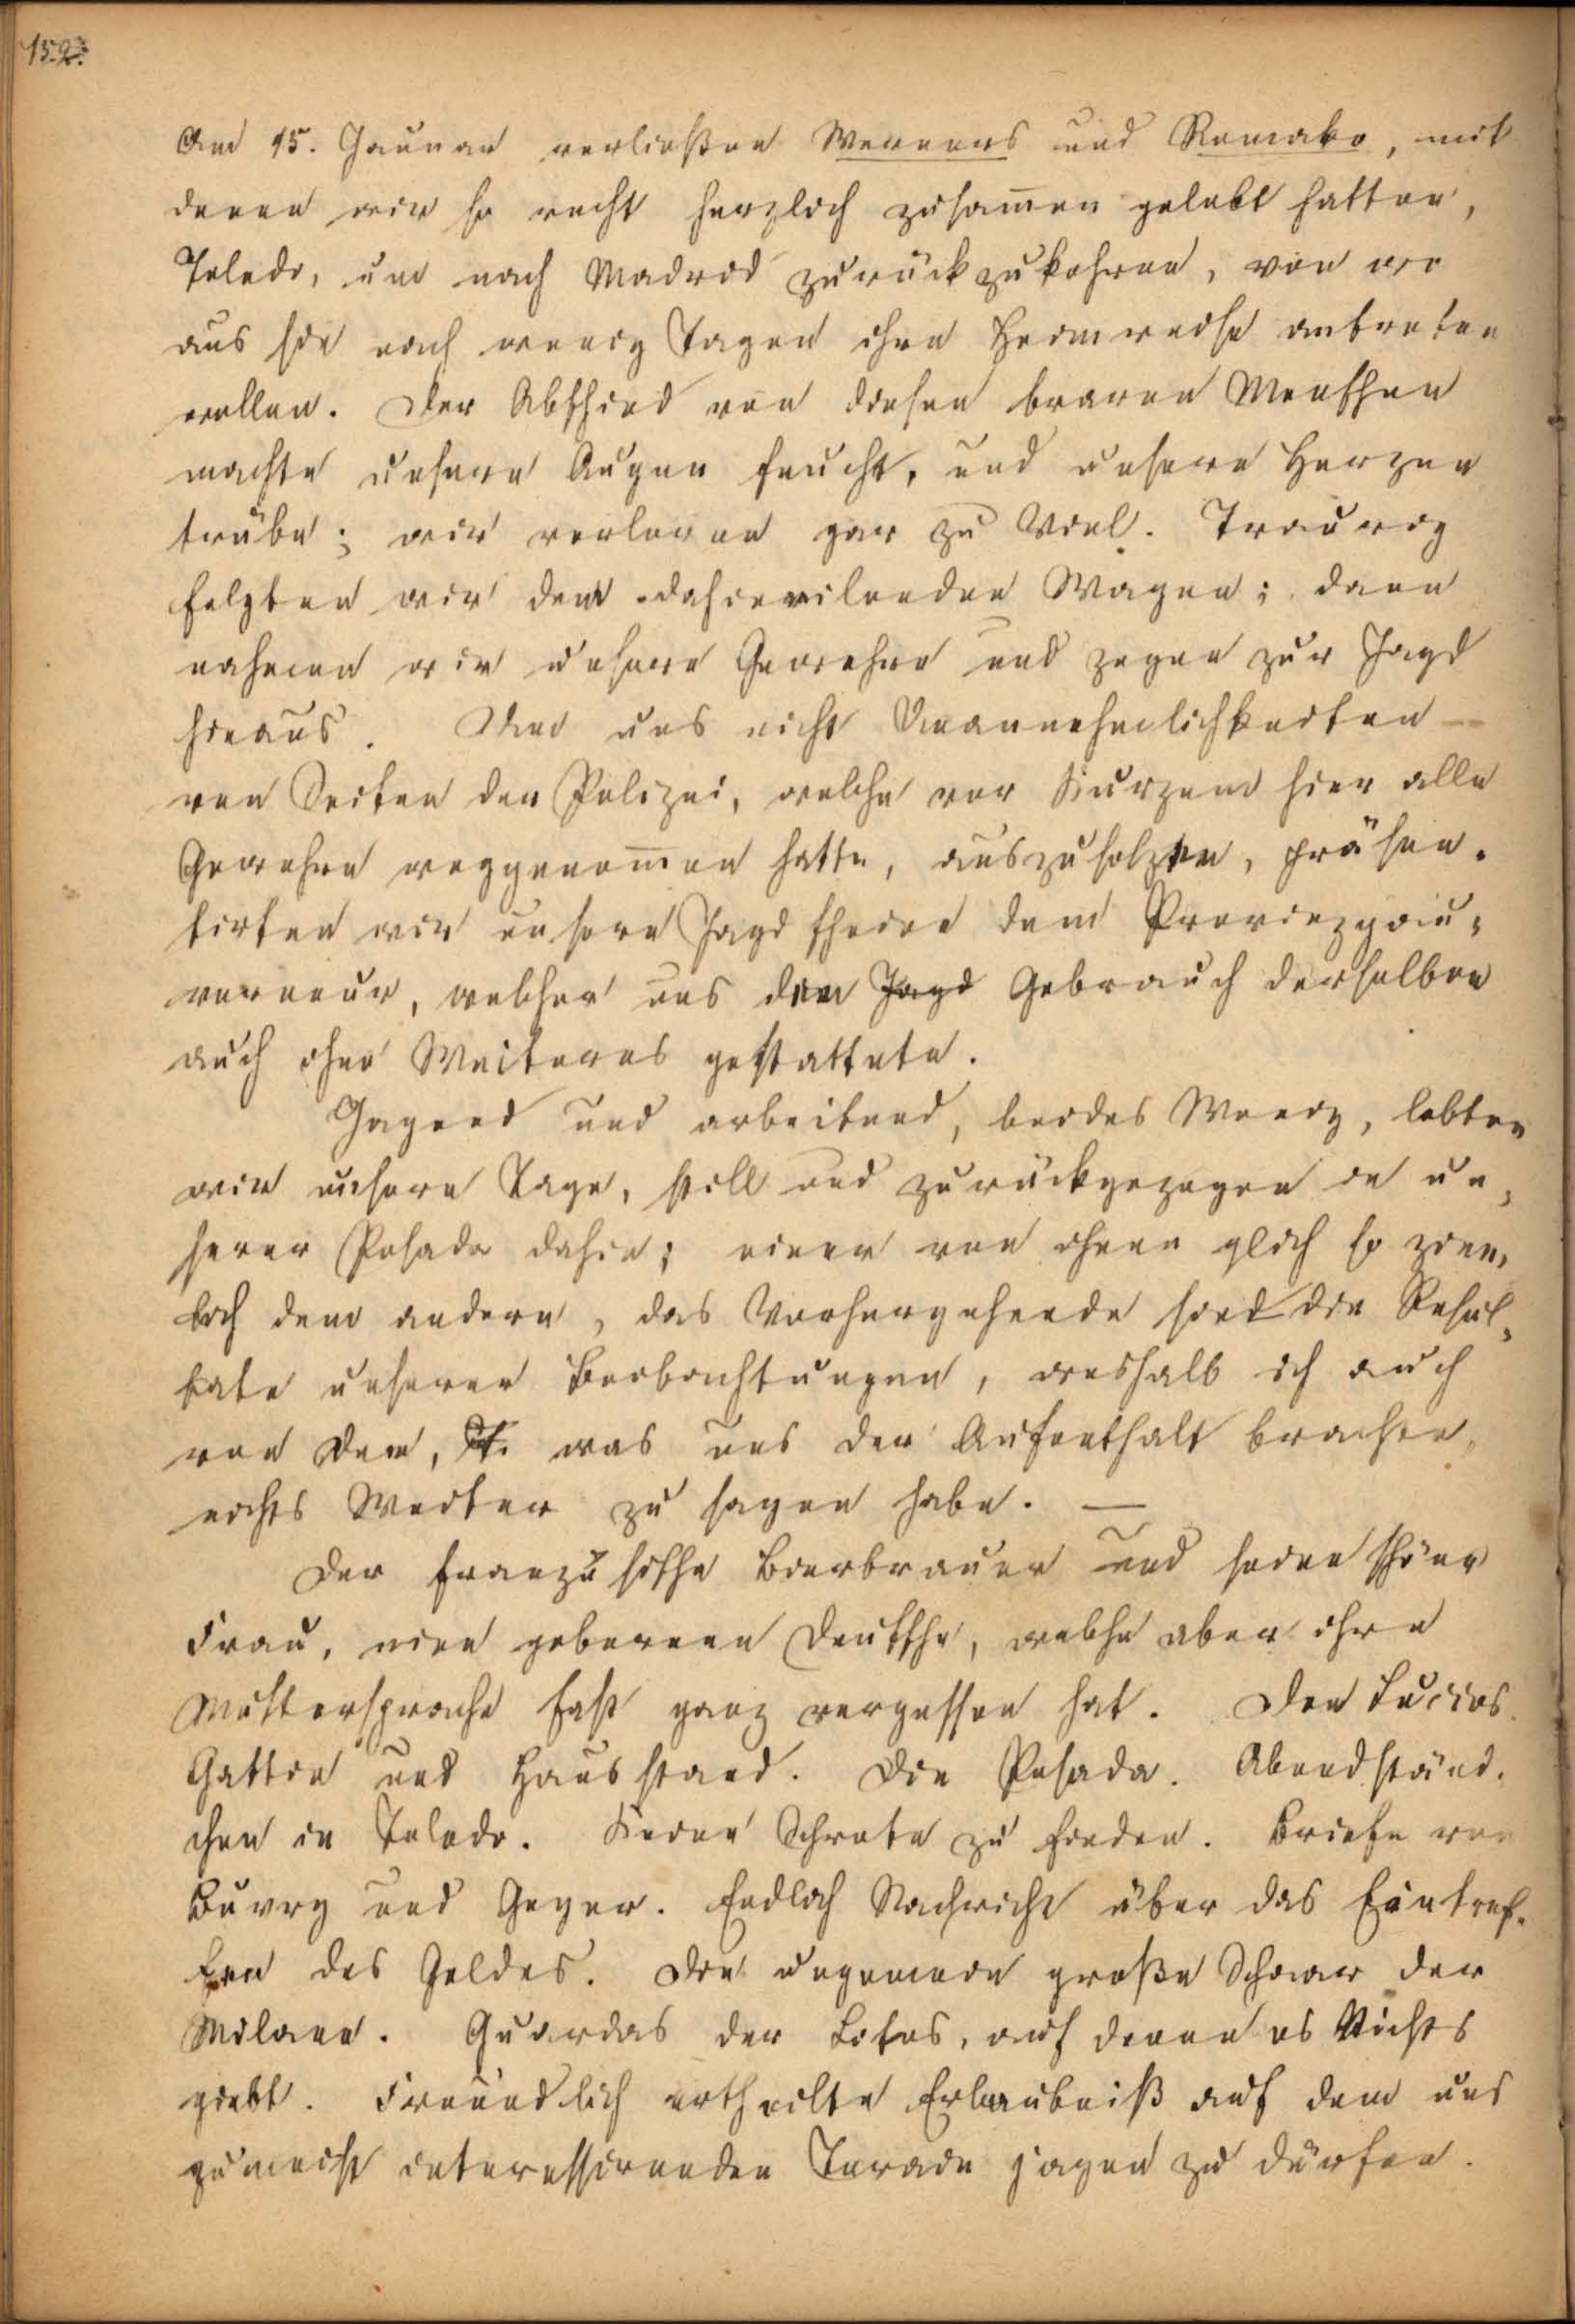 152.
Am 15. Januar verließen Werners und Romako, mit
denen wir so recht herzlich zusam̅en gelebt hatten,
Toledo, um nach Madrid zurückzukehren, von wo
aus sie nach wenig Tagen ihre Heimreise antreten
wollen. Der Abschied von diesen braven Menschen
machte unsere Augen feucht, und unsere Herzen
trübe; wir verloren gar zu Viel. Traurig
folgten wir dem dahineilenden Wagen; dann
nahmen wir unsere Gewehre und zogen zur Jagd
hinaus. Um uns nicht Unannehmlichkeiten
von Seiten der Polizei, welche vor Kurzem hier alle
Gewehre weggenom̅en hatte, auszusetzen, präsen-
tirten wir unsere Jagdscheine dem Provinzgou-
verneur, welcher uns den Jagd Gebrauch derselben
auch ohne Weiteres gestattete.
Jagend und arbeitend, beides Wenig, lebten
wir unsere Tage, still und zurückgezogen in un-
serer Posada dahin; einer von ihnen glich so ziem-
lich dem andern, das Vorhergehende sind die Resul-
tate unserer Beobachtungen, weshalb ich auch
von Dem, was uns der Aufenthalt brachte,
nichts Weiter zu sagen habe. —
Der französische Bierbrauer und seine schöne
Frau, eine geborene Deutsche, welche aber ihre
Muttersprache fast ganz vergessen hat. Don Lucios
Gattin und Hausstand. Die Posada. Abendständ-
chen in Toledo. Keine Schrote zu finden. Briefe von
Buvry und Geyer. Endlich Nachricht über das Eintref-
fen des Geldes. Die ungemein große Schaar der
Milane. Guardas der Sotos, auf denen es Nichts
giebt. Freundlich ertheilte Erlaubniß auf dem uns
zumeist interessirenden Terain jagen zu dürfen.